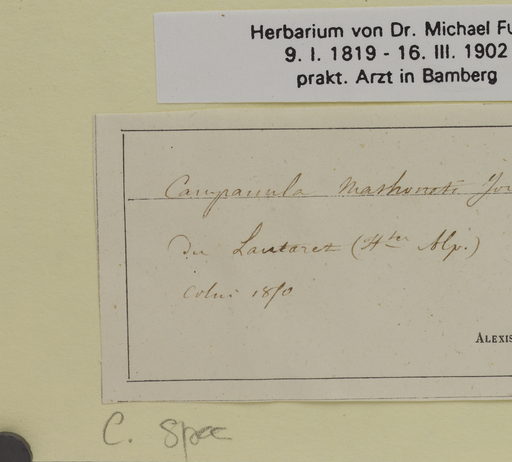 Herbarium von Dr. Michael Fu
9. I. 1819 - 16. III. 1902
prakt. Arzt in Bamberg
Campanula
du Lautaret (Htes Alp.)
1850
ALEXIS
C. Spec